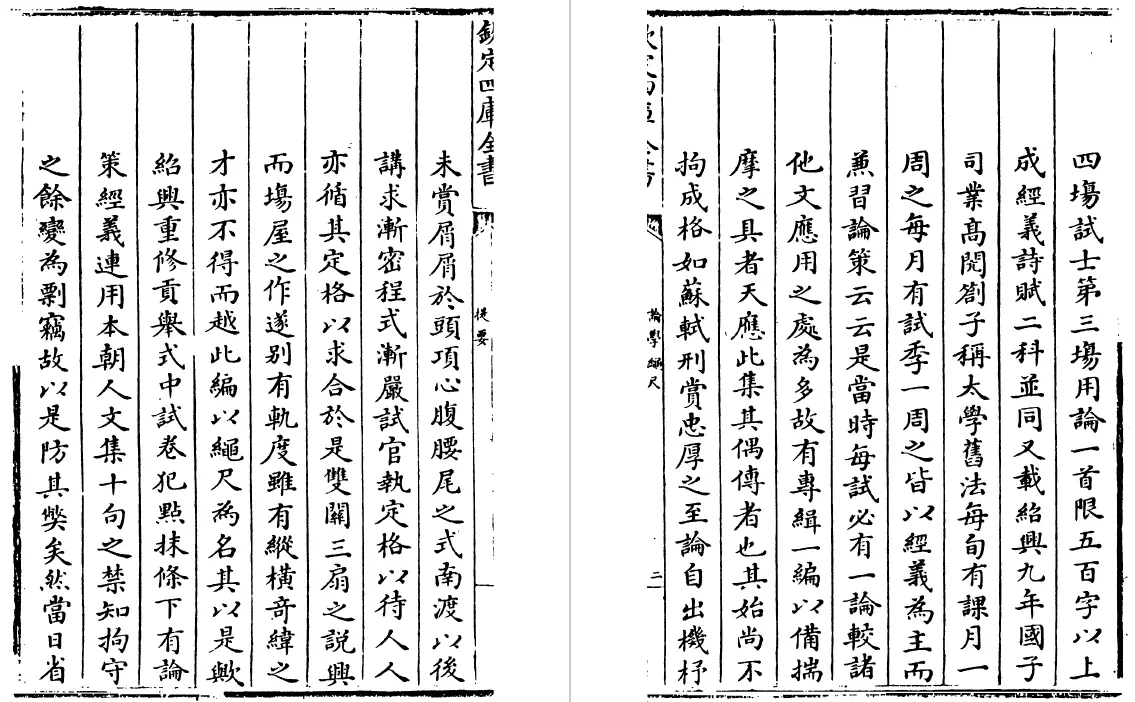 四塲試士第三塲用論一首限五百字以上
成經義詩賦二科並同又載紹興九年國子
司業髙閌劄子稱太學舊法每旬有課月一
周之每月有試季一周之皆以經義為主而
兼習論策云云是當時每試必有一論較諸
他文應用之處為多故有專緝一編以備揣
摩之具者天應此集其偶傳者也其始尚不
拘成格如蘇軾刑賞忠厚之至論自出機杼
論學繩尺
二
欽定四庫全書
提要
未嘗屑屑於頭項心腹腰尾之式南渡以後
講求漸密程式漸嚴試官執定格以待人人
亦循其定格以求合於是雙關三扇之説興
而塲屋之作遂别有軌度雖有縱橫竒偉之
才亦不得而越此編以繩尺為名其以是歟
紹興重修貢舉式中試卷犯點抹條下有論
策經義連用本朝人文集十句之禁知拘守
之餘變為剽竊故以是防其弊矣然當日省